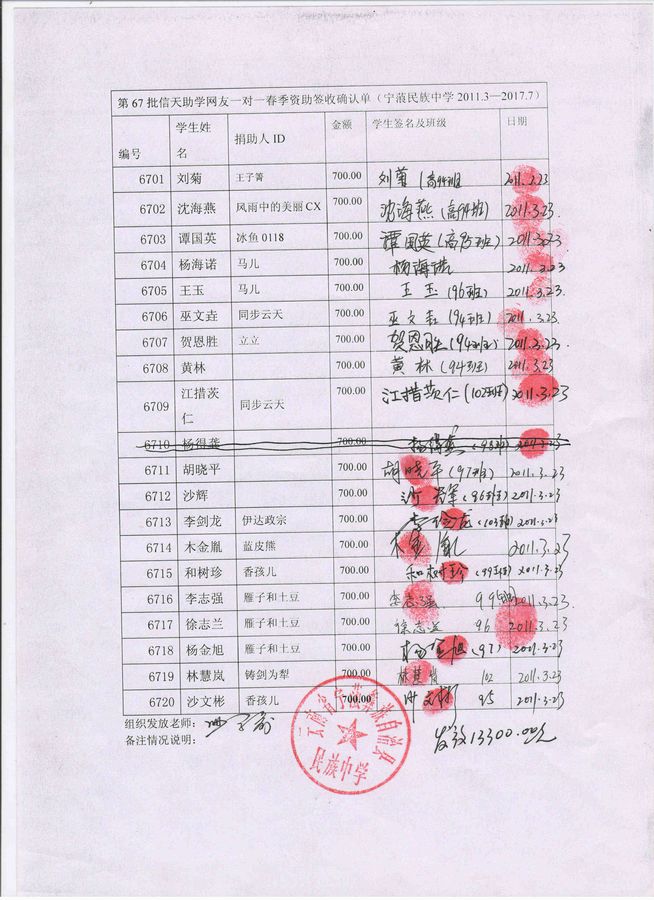 第 67 批信天助学网友一对一春季资助签收确认单（宁蒗民族中学 2011.3—2017.7）
编号 学生姓名 捐助人 ID 金额 学生签名及班级 日期
6701 刘菊 王子箐 700.00 刘菊 2011.3.23
6702 沈海燕 风雨中的美丽 CX 700.00 沈海燕 2011.3.23
6703 谭国英 冰鱼 0118 700.00 谭国英（高95班） 2011.3.23
6704 杨海诺 马儿 700.00 杨海诺 2011.3.23
6705 王玉 马儿 700.00 王玉（96班） 2011.3.23.
6706 巫文垚 同步云天 700.00 巫文垚（94班） 2011.3.23.
6707 贺恩胜 立立 700.00 贺恩胜（94班） 2011.3.23.
6708 黄林 700.00 黄林（94班） 2011.3.23
6709 江措茨仁 同步云天 700.00 江措茨仁（102班） 2011.3.23
6710 杨得龚 700.00 2011.3.23
6711 胡晓平 700.00 胡晓平（97班） 2011.3.23
6712 沙辉 700.00 沙辉（96班） 2011.3.23
6713 李剑龙 伊达政宗 700.00 李剑龙（103班） 2011.3.23
6714 木金胤 蓝皮熊 700.00 木金胤 2011.3.23
6715 和树珍 香孩儿 700.00 和树珍（99班） 2011.3.23
6716 李志强 雁子和土豆 700.00 李志强 99班 2011.3.23.
6717 徐志兰 雁子和土豆 700.00 徐志兰 96 2011.3.23
6718 杨金旭 雁子和土豆 700.00 杨金旭（97） 2011.3.23
6719 林慧岚 铸剑为犁 700.00 林慧岚 102 2011.3.23
6720 沙文彬 香孩儿 700.00 沙文彬 95 2011.3.23
组织发放老师：
备注情况说明： 发放13300.00元
云南省宁蒗彝族自治县
民族中学